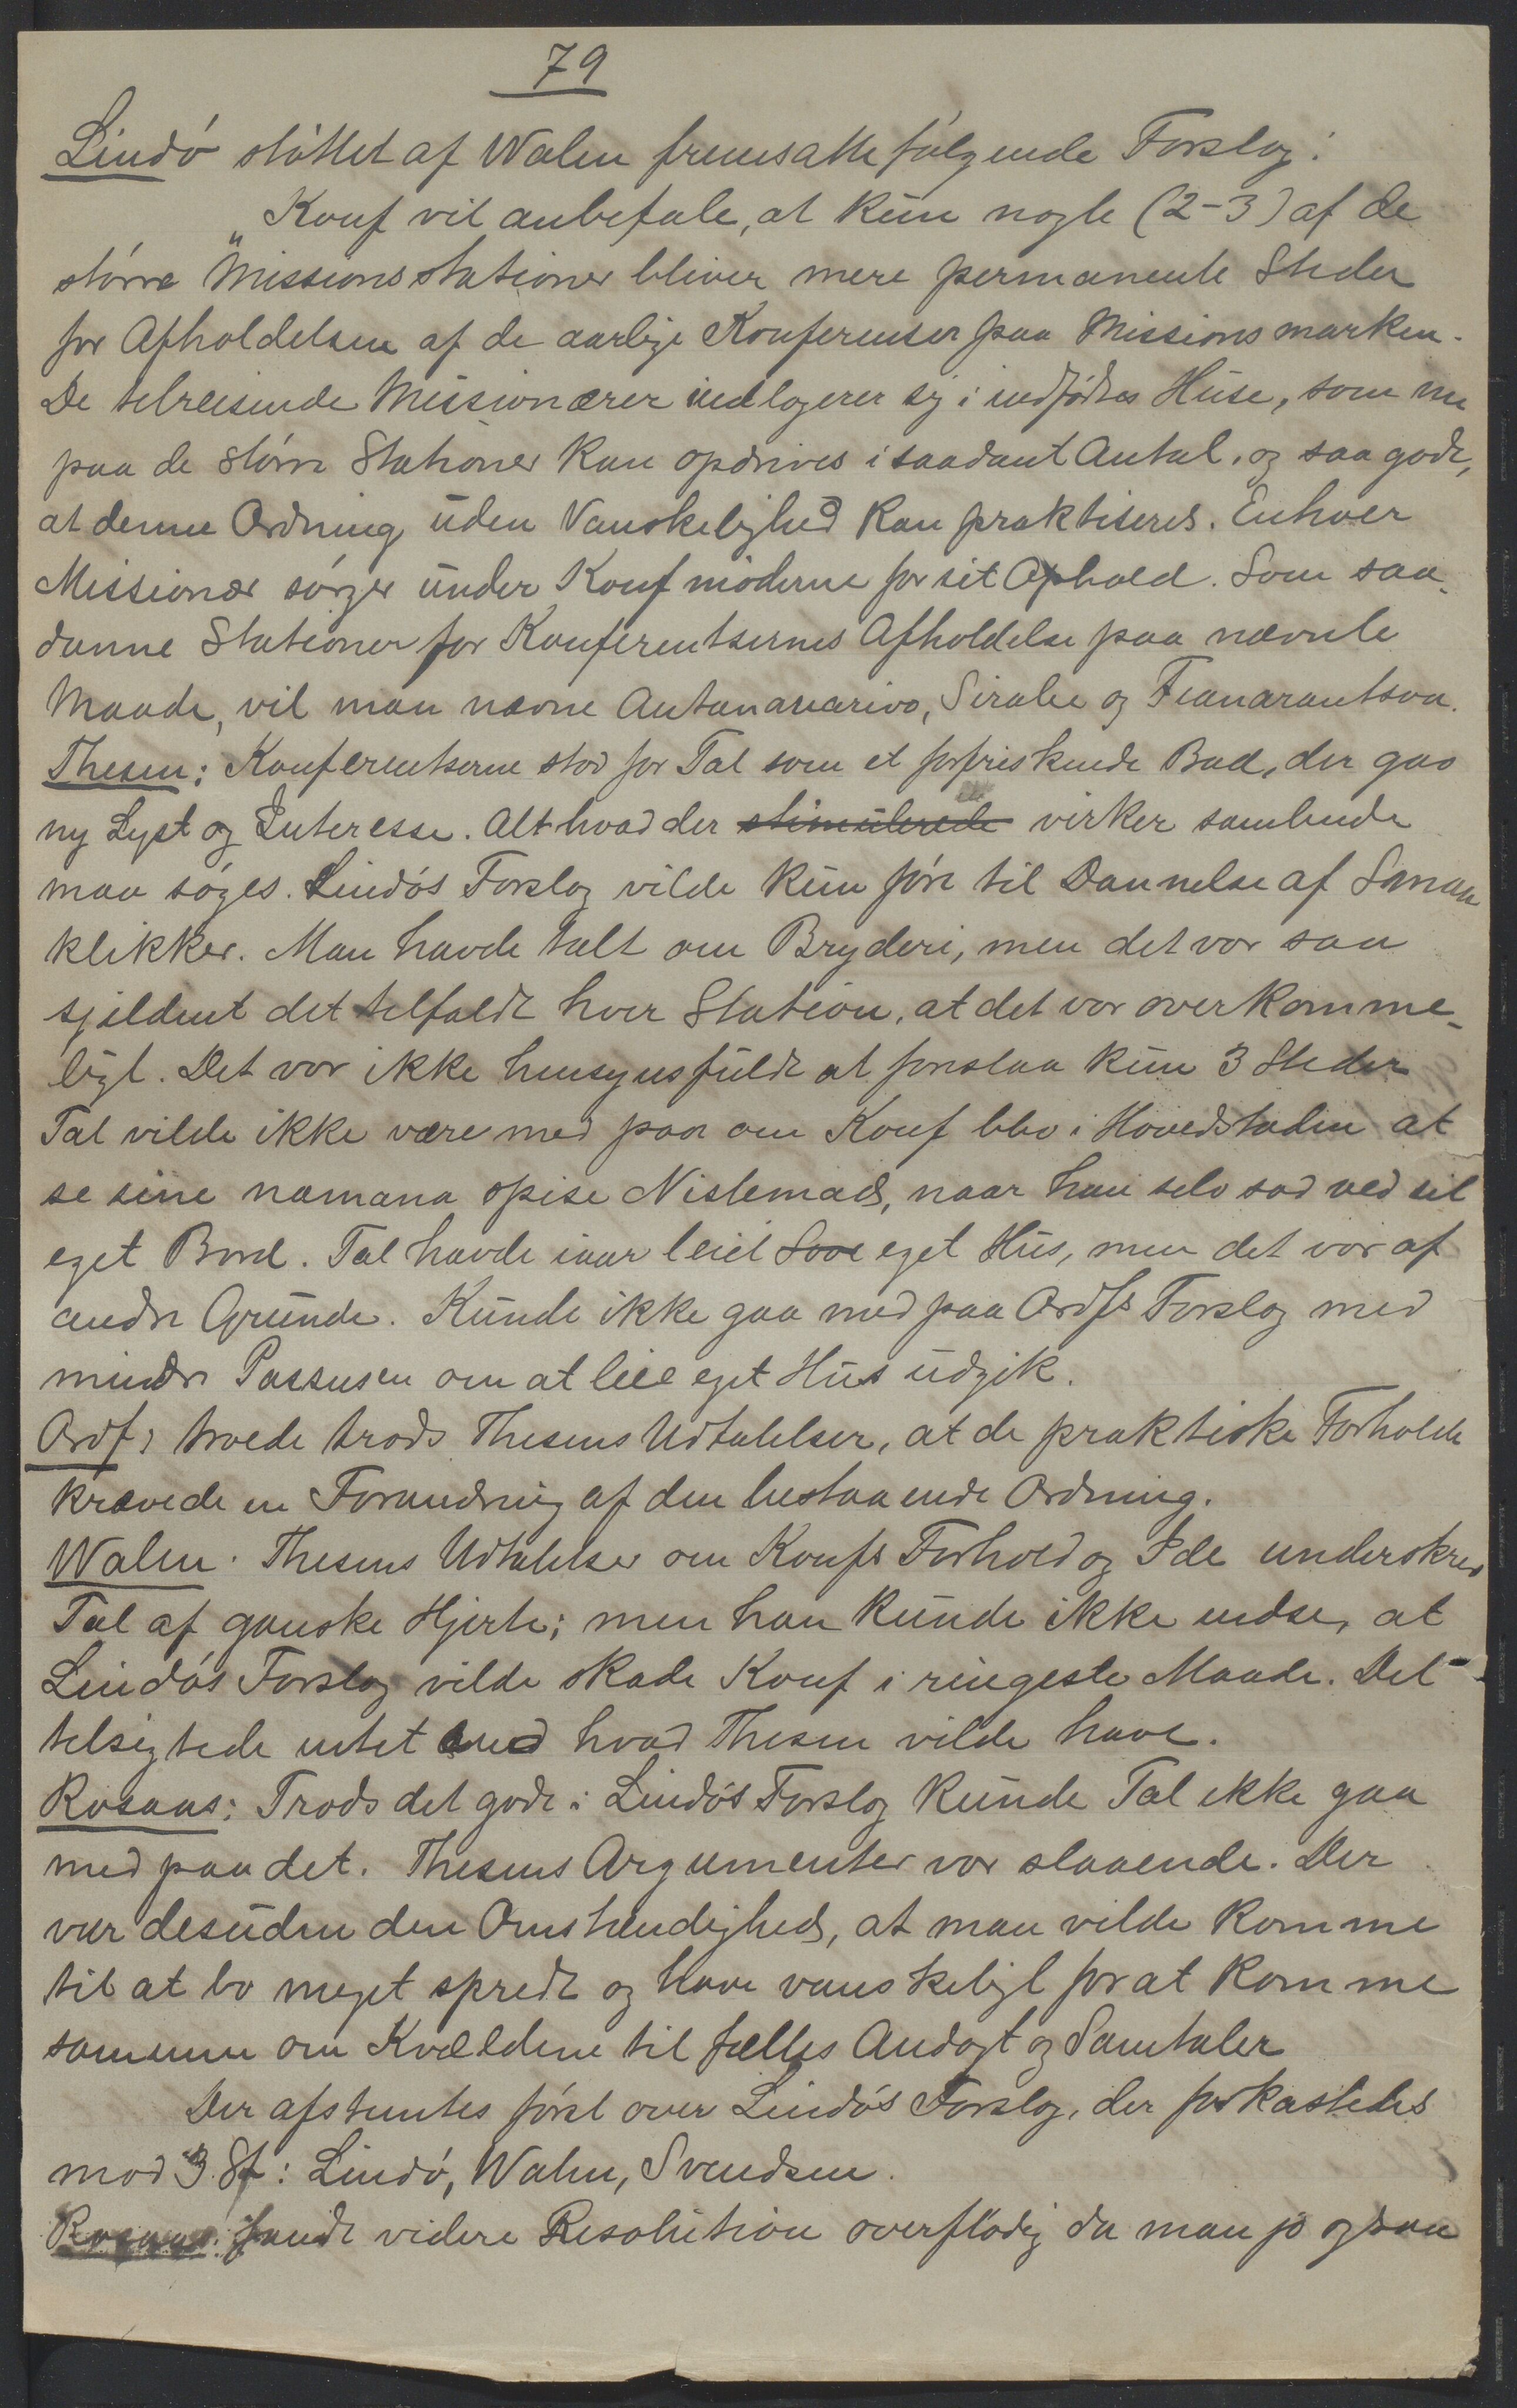 79
Lindö støttet af Walen fremsatte følgende Forslag:
„Konf vil anbefale, at kun nogle (2-3) af de
større Missionsstationer bliver mere permanente Steder
for Afholdelsen af de aarlige Konferenser paa Missionsmarken.
De tilreisende Missionærer indlogerer sig i indfødtes Huse, som nu
paa de større Stationer kan opdrives i saadant Antal, og saa gode,
at denne Ordning uden Vanskelighed kan praktiseres. Enhver
Missionær sørger under Konfmøderne for sit Ophold. Som saa-
danne Stationer for Konferentsernes Afholdelse paa nævnte
Maade, vil man nævne Antananarivo, Sirabe og Fianarantsoa.
Thesen: Konferentserne stod for Tal som et forfriskende Bad, der gav
ny Lyst og Interesse. Alt hvad der stimulerede virker samlende
maa søges. Lindøs Forslag vilde kun føre til Dannelse af Smaa
klikker. Man havde talt om Bryderi, men det var saa
sjeldent det tilfaldt hver Station, at det var overkomme-
ligt. Det var ikke hensynsfuldt at foreslaa kun 3 Steder
Tal vilde ikke være med paa om Konf blev i Hovedstaden at
se sine namana spise Nistemad, naar han selv sad ved sit
eget Bord. Tal havde iaar leiet eget Hus, men det var af
andre Grunde. Kunde ikke gaa med paa Ordfs Forslag med
mindre Passusen om at leie eget Hus udgik.
Ordf: troede trods Thesens Udtalelser, at de praktiske Forholde
krævede en Forandring af den bestaaende Ordning.
Walen. Thesens Udtalelser om Konfs Forhold og Ide underskrev
Tal af ganske Hjerte; men han kunde ikke indse, at
Lindøs Forslag vilde skade Konf i ringeste Maade. Det
tilsigtede intet hvad Thesen vilde have.
Rosaas: Trods det gode i Lindøs Forslag kunde Tal ikke gaa
med paa det. Thesens Argumenter var slaaende. Der
var desuden den Omstændighed, at man vilde komme
til at bo meget spredt og have vanskeligt for at komme
sammen om Kvældene til fælles Andagt og Samtaler
Der afstemtes først over Lindøs Forslag, der forkastedes
mod 3 St: Lindø, Walen, Svendsen.
Rosaas: fandt videre Resolution overflødig da man jo ogsaa